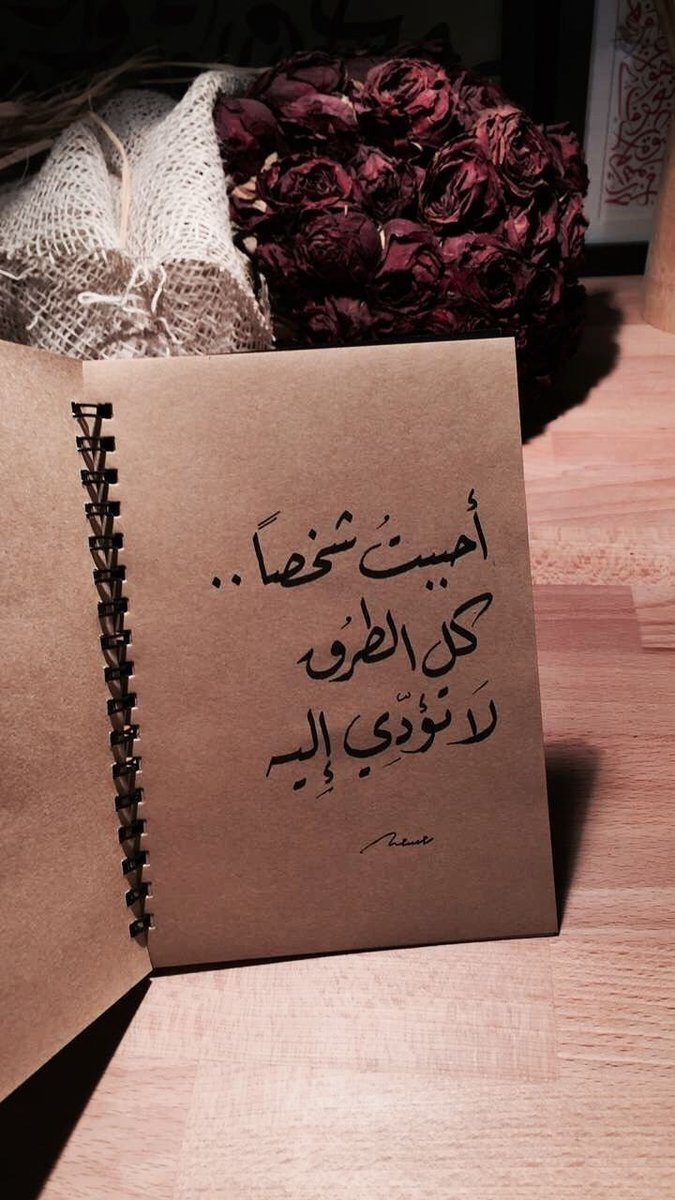 أحببتُ شخصاً ..
كل الطرُق
لَا تؤدِّي إِليه